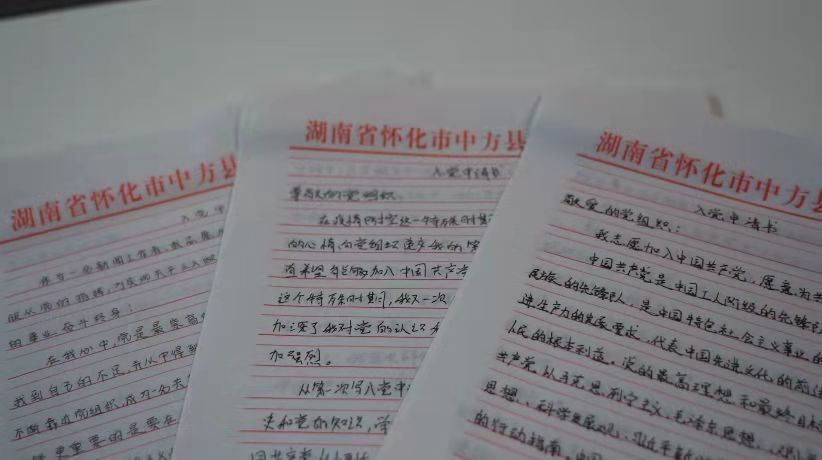 湖南省怀化市中方县
入党申
作为一名新闻工作者,我
的事业奋斗终身!
在我心中,党是最崇高
我到自身的不足,并从中得到
不断靠近党组织,成为
更重要的是要在
湖南省怀化市中方县
入党申请书
尊敬的党组织
在疫情防控这一特殊时期
的心情向党组织递交我的
着希望能够加入中国共产
这个特殊时期间,我又一次
加深了我对党的认识和
加强烈。
从第一次写入党申
史和党的知识,学
国共产党
湖南省怀化市中方县
入党申请书
敬爱的党组织:
我志愿加入中国共产党,愿意为共
中国共产党是中国工人阶级的先锋队
民族的先锋队,是中国特色社会主义事业的
进生产力的发展要求,代表中国先进文化的前进
人民的根本利益。党的最高理想和最终目标
共产党以马克思列宁主义、毛泽东思想、邓小
思想、科学发展观、习近平新
的行动指南。中国